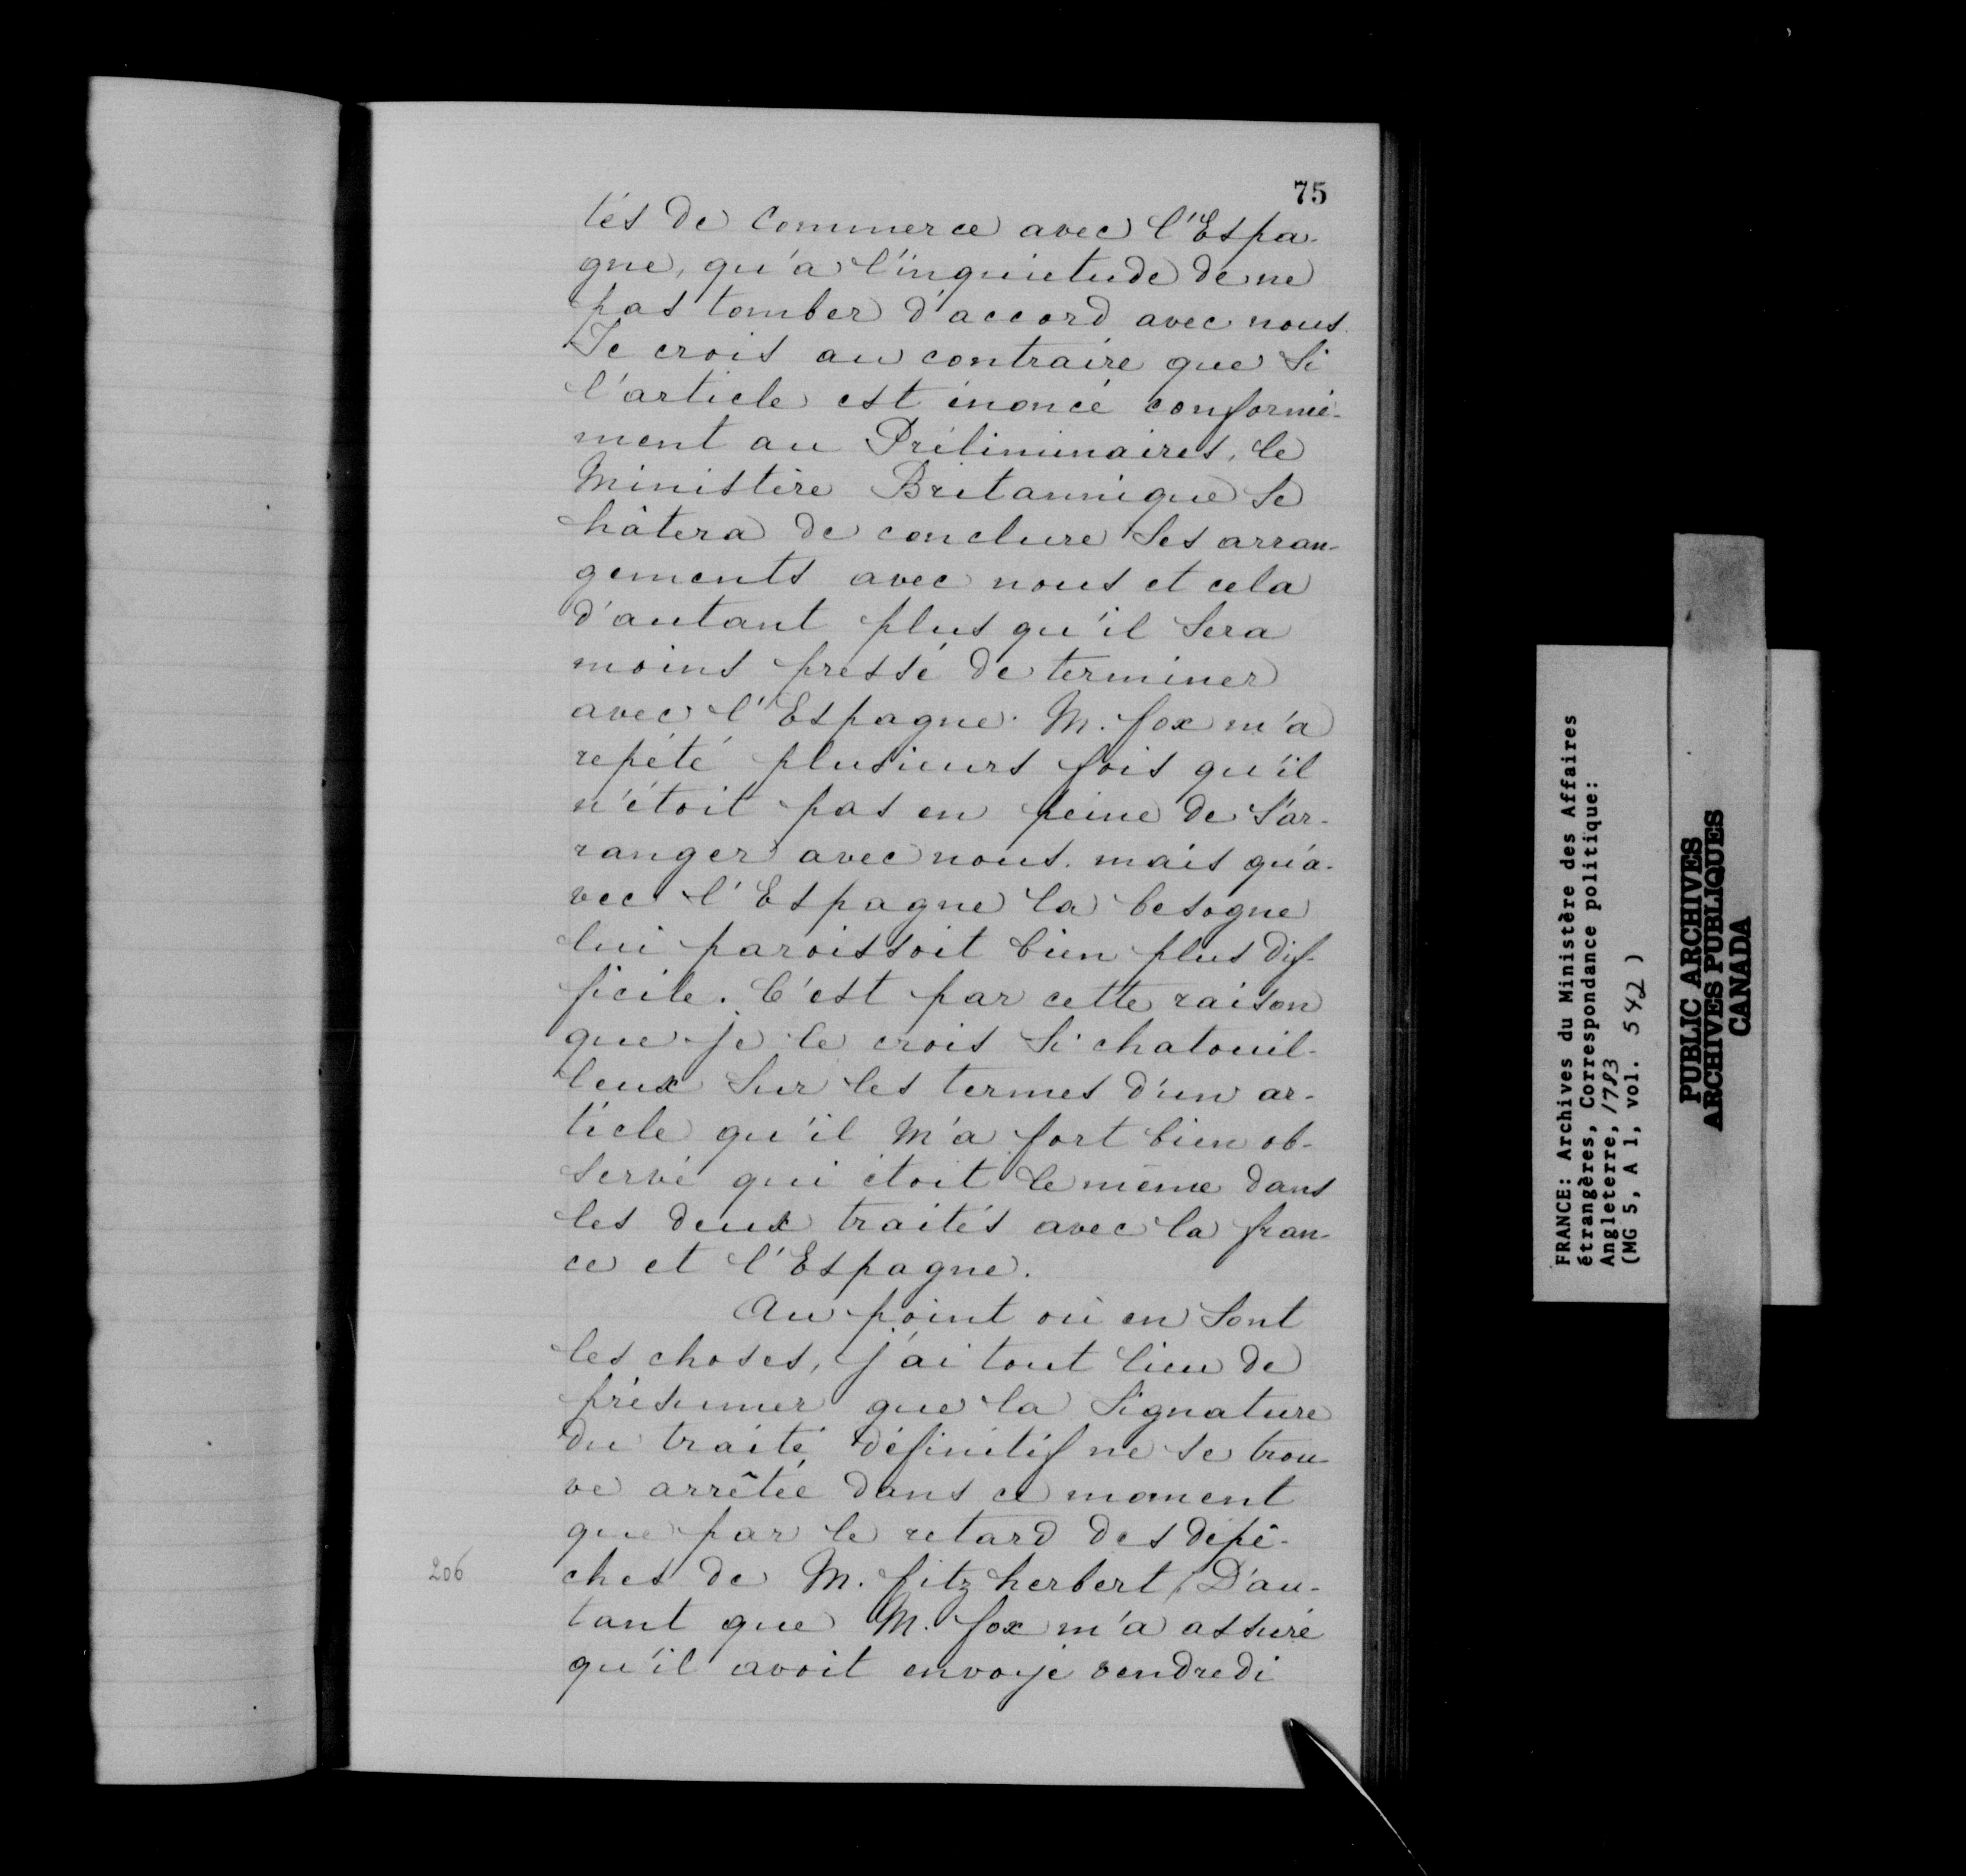 75
tés de Commerce avec l'Espa-
gne, qu'à l'inquietude de ne
pas tomber d'accord avec nous.
Je crois au contraire que si
l'article est énoncé conformé-
ment au Préliminaires, le
Ministère Britannique se
hâtera de conclure ses arran-
gements avec nous et cela
d'autant plus qu'il sera
moins pressé de terminer
avec l'Espagne. M. fox m'a
repété plusieurs fois qu'il
n'étoit pas en peine de s'ar-
ranger avec nous. mais qu'a-
vec l'Espagne la besogne
lui paroissoit bien plus dif-
ficile. C'est par cette raison
que je le crois si chatouil-
leux sur les termes d'un ar-
ticle qu'il m'a fort bien ob-
servé qui étoit le même dans
les deux traités avec la fran-
ce et l'Espagne.
Au point où en sont
les choses, j'ai tout lieu de
présumer que la signature
du traité définitif ne se trou-
ve arrêtée dans ce moment
que par le retard des dépê-
206
ches de M. fitz herbert, D'au-
tant que M. fox m'a assuré
qu'il avoit envoyé vendredi
FRANCE: Archives du Ministère des Affaires
étrangères, Correspondance politique:
Angleterre, 1783
(MG 5, A 1, vol. 542)
PUBLIC ARCHIVES
ARCHIVES PUBLIQUES
CANADA